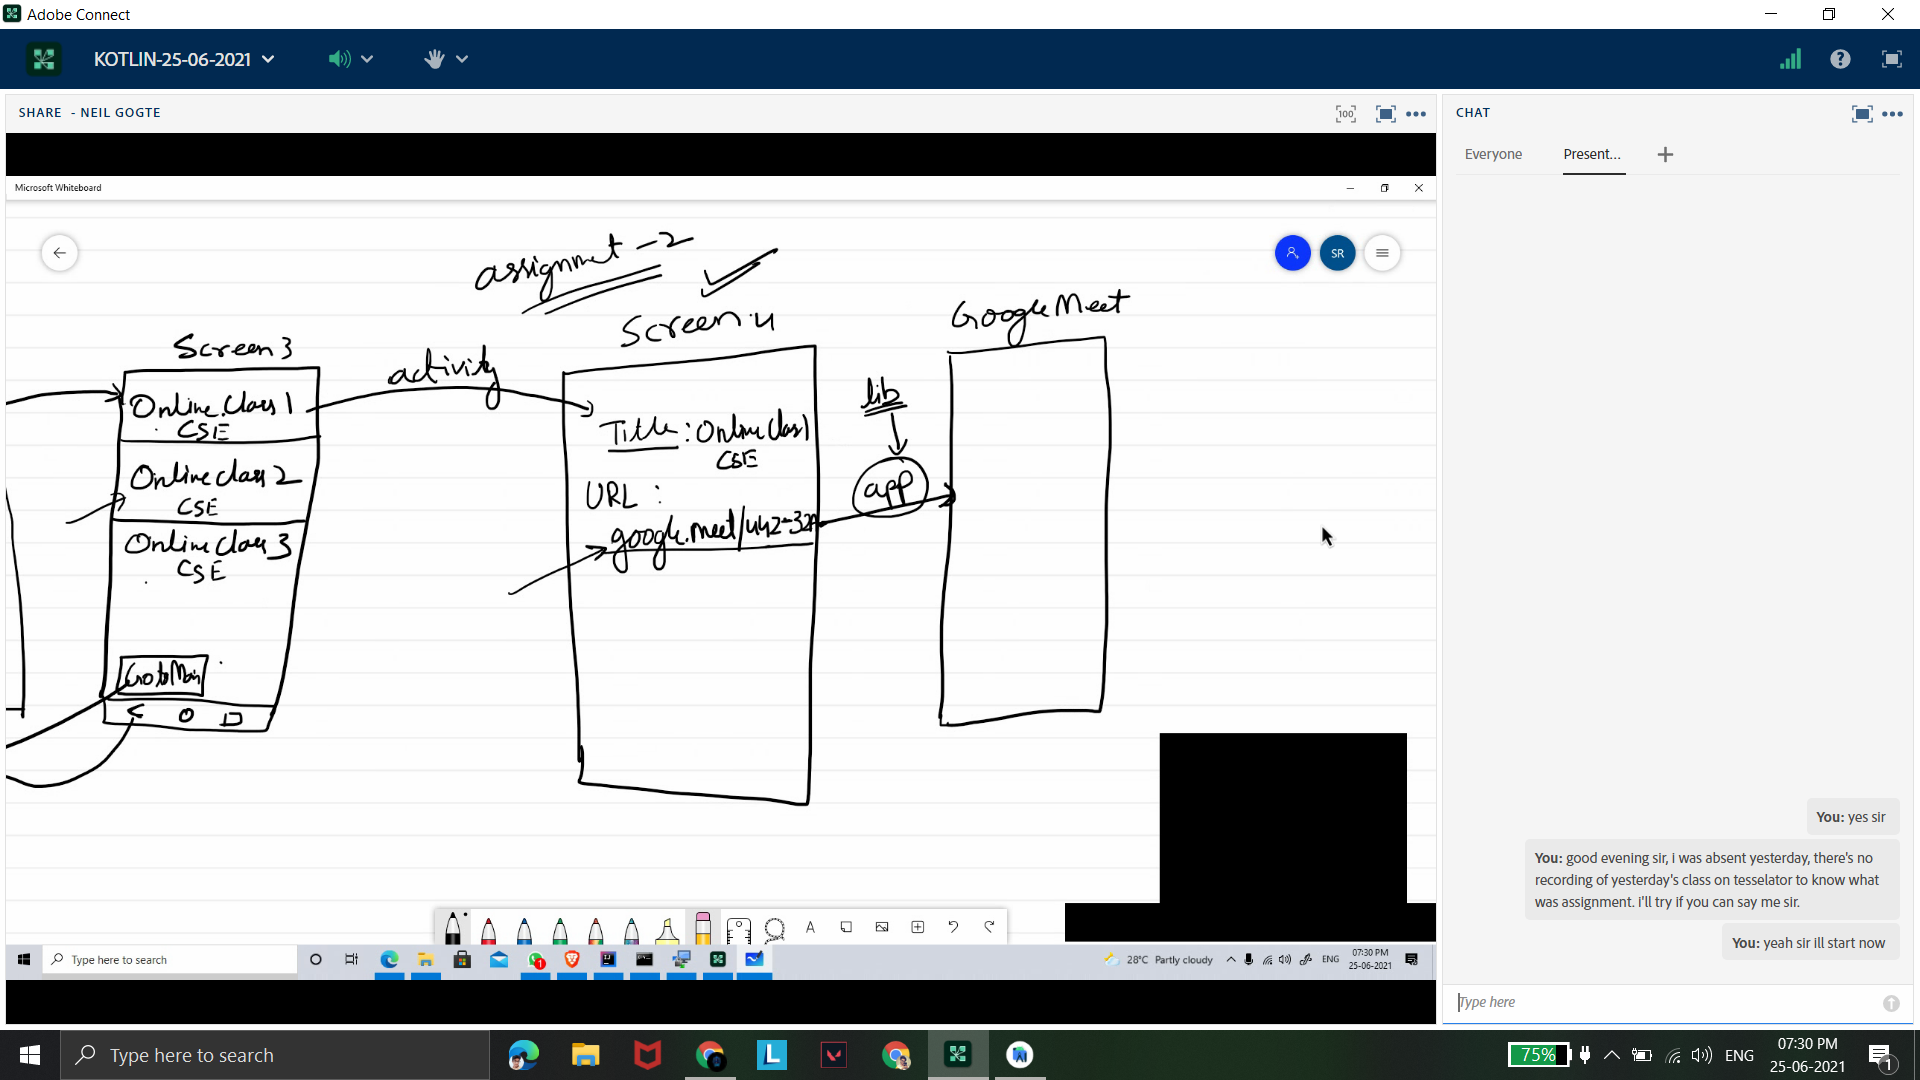 Adobe Connect
KOTLIN-25-06-2021
SHARE - NEIL GOGTE
100
Microsoft Whiteboard
assignmet - 2
SR
Screen 3
activity
Screen.4
Google Meet
Online.Class 1
CSE
Online class 2
CSE
Online Class 3
CSE
Goto Main
lib
app
Title : Online Class 1
CSE
URL :
google.meet/442-32
A
Type here to search
28°C Partly cloudy
ENG
07:30 PM
25-06-2021
CHAT
Everyone
Present...
You: yes sir
You: good evening sir, i was absent yesterday, there's no
recording of yesterday's class on tesselator to know what
was assignment. i'll try if you can say me sir.
You: yeah sir ill start now
Type here
Type here to search
L
75%
ENG
07:30 PM
25-06-2021
1